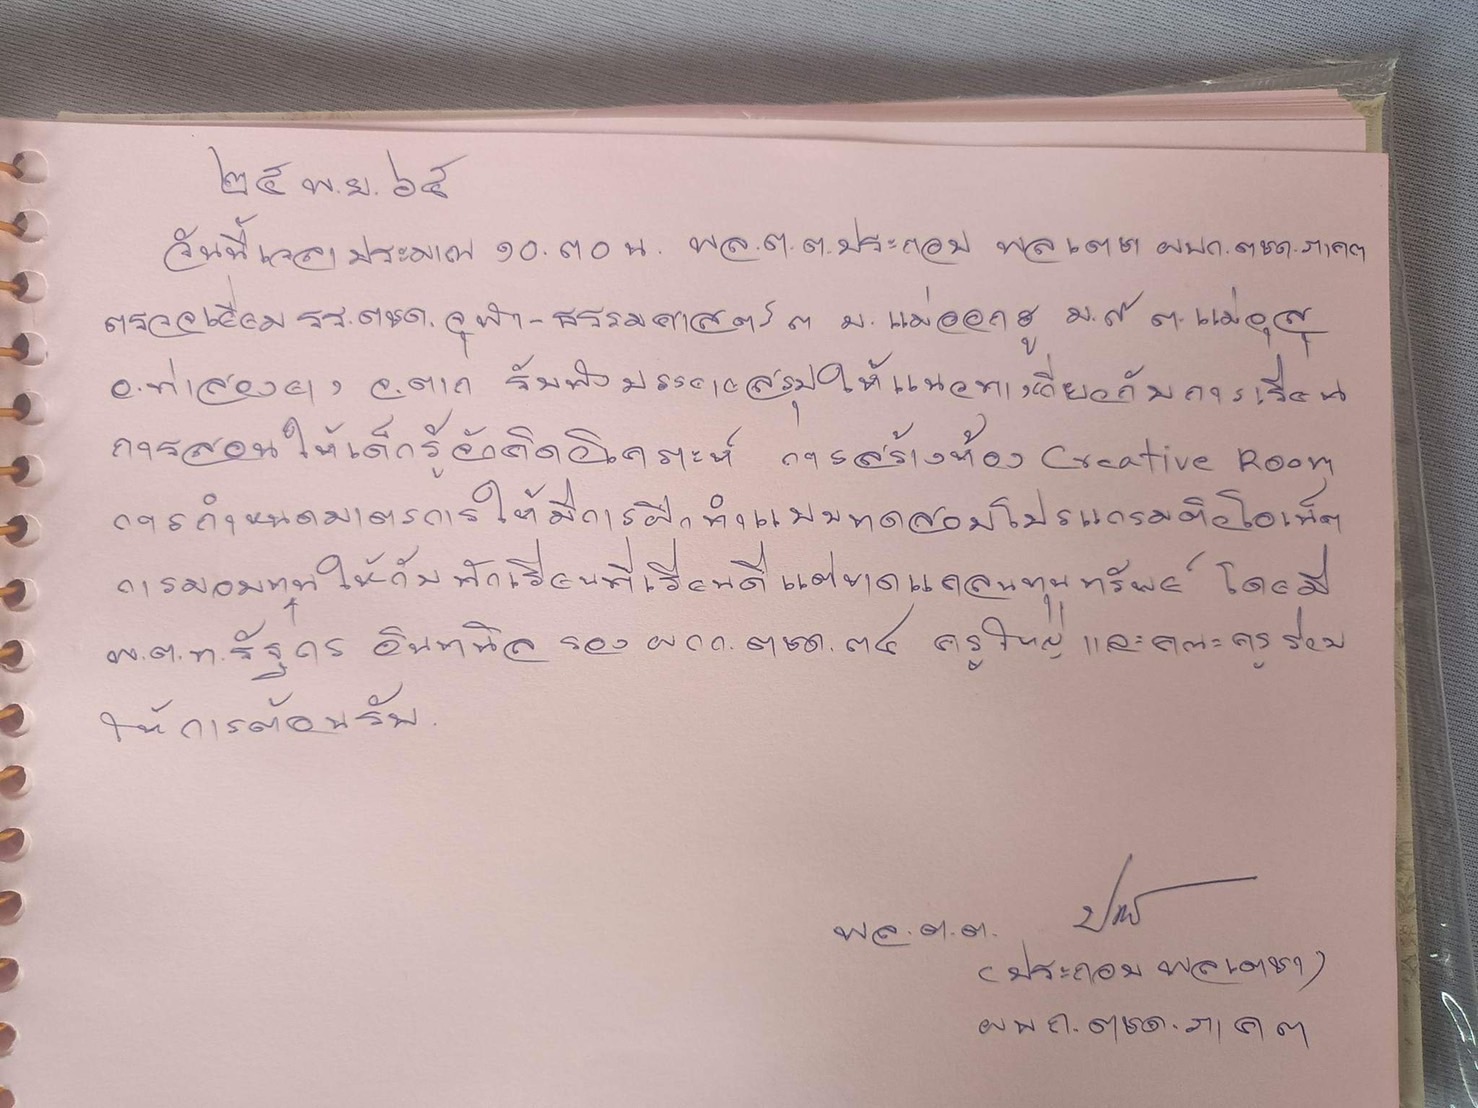 ๒๕ พ.ย. ๖๕
วันนี้เวลาประมาณ ๑๐.๓๐ น. พล.ต.ต.ประกอบ พลเดชา ผบก.ตชด.ภาค๓
ตรวจเยี่ยม รร.ตชด.จุฬา-ธรรมศาสตร์ ๓ บ.แม่ออกฮู ม.๙ ต.แม่อุสุ
อ.ท่าสองยาง จ.ตาก รับฟังบรรยายสรุปให้แนวทางเกี่ยวกับการเรียน
การสอนให้เด็กรู้จักคิดวิเคราะห์ การสร้างห้อง Creative Room
การกำหนดมาตรการให้มีการฝึกทำแบบทดสอบโปรแกรมติวโอเน็ต
การมอบทุนให้กับนักเรียนที่เรียนดีแต่ขาดแคลนทุนทรัพย์ โดยมี
พ.ต.ท.รัฐการ อินทนิล รอง ผกก.ตชด.๓๔ ครูใหญ่ และคณะครูร่วม
ให้การต้อนรับ.
พล.ต.ต.
(ประกอบ พลเดชา)
ผบก.ตชด.ภาค ๓